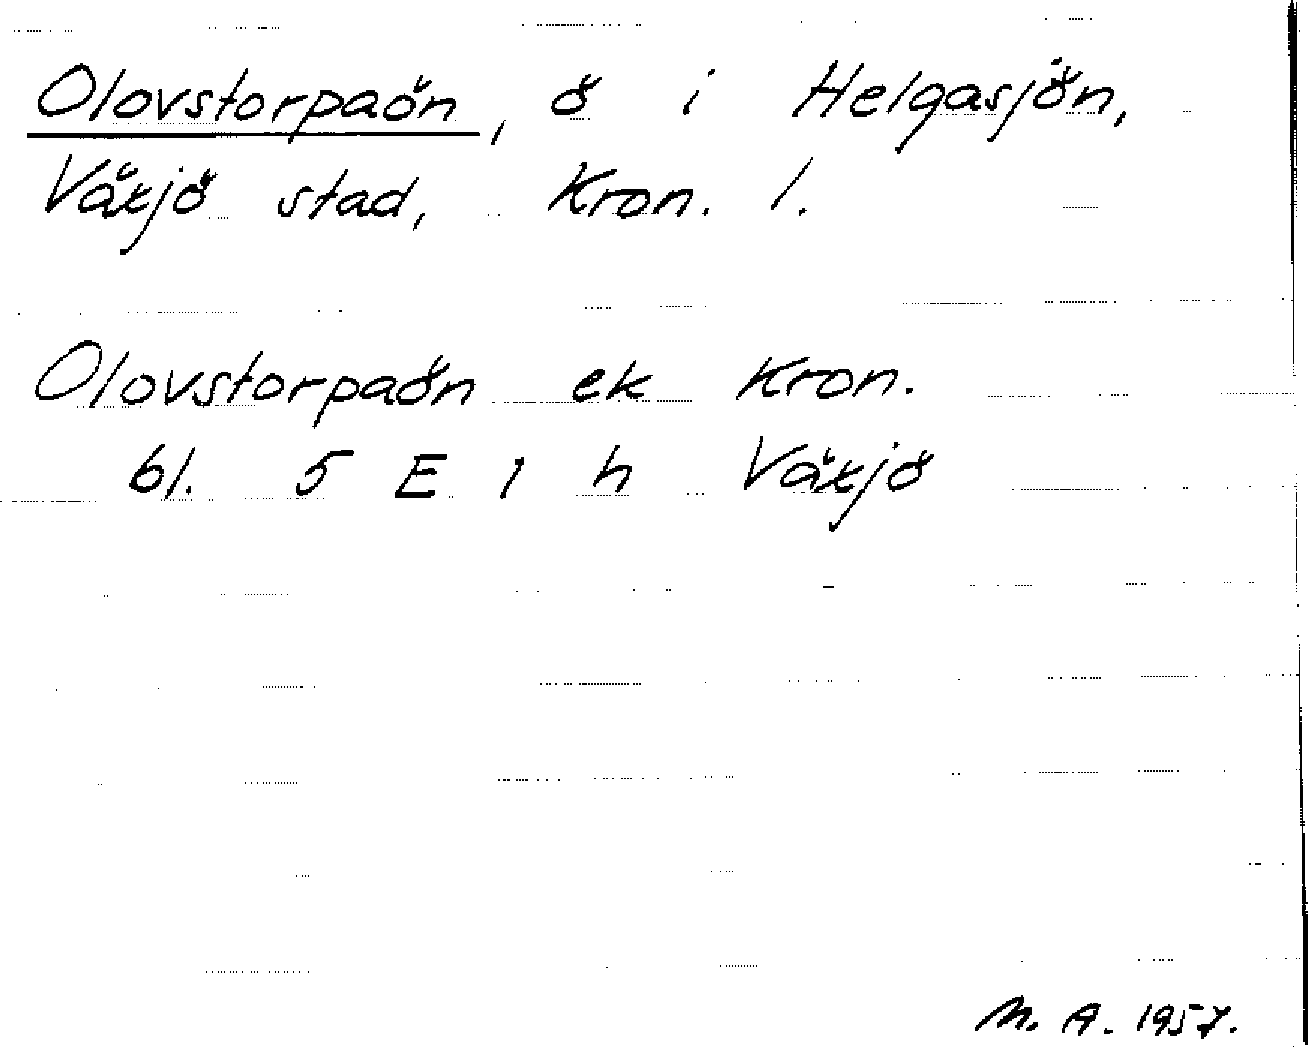 Olovstorpaön, ö i Helgasjön,
Växjö stad, Kron. l.
Olovstorpaön ek Kron.
bl. 5 E 1 h Växjö
M. A. 1957.